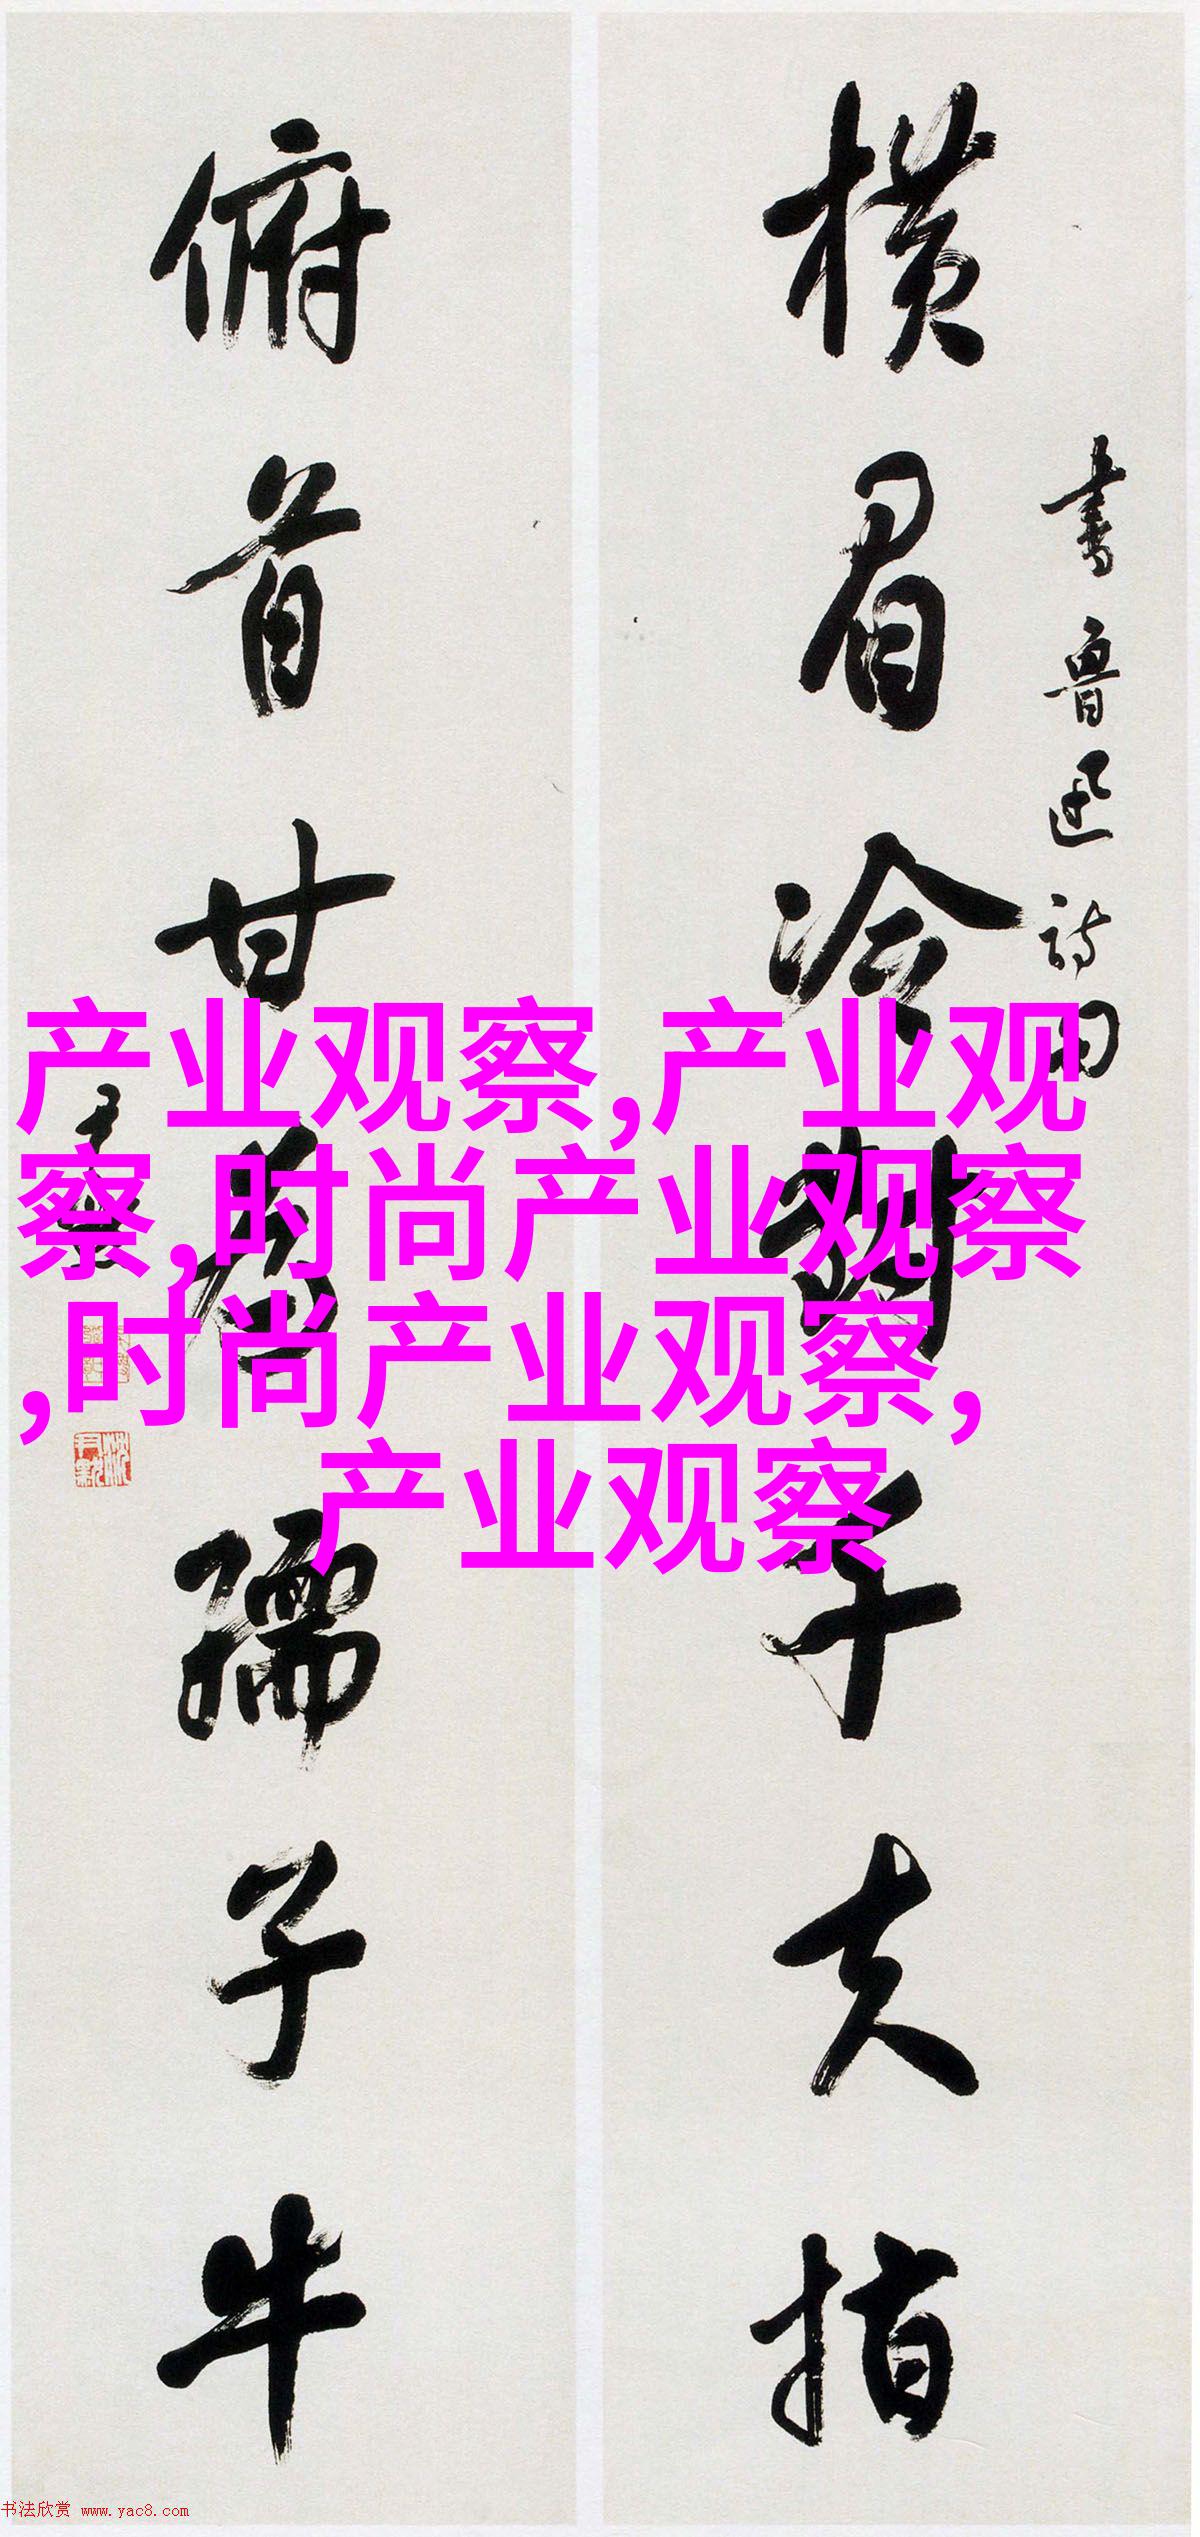 横眉冷对千夫指
书鲁迅诗句
俯首甘为孺子牛
尹默
沈尹默
产业观察,产业观
察,时尚产业观察
,时尚产业观察,
产业观察
书法欣赏 www.yac8.com